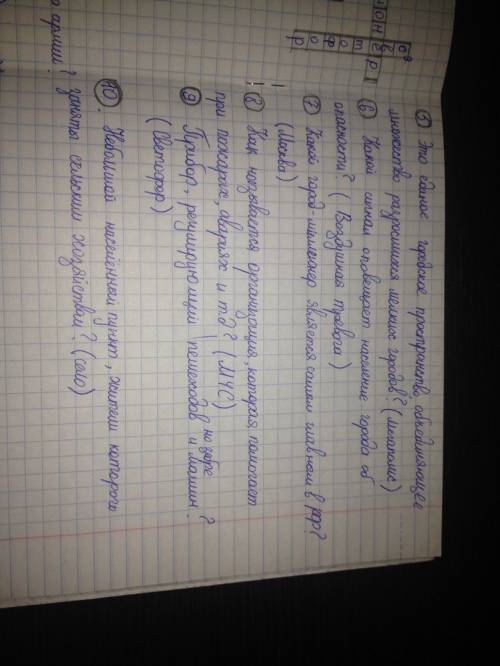 ⑤ Это единое городское пространство, объединяющее
множество разросшихся мелких городов? (мегаполис)
⑥ Какой сигнал оповещает население города об
опасности? (Воздушная тревога)
⑦ Какой город-миллионер является самым главным в РФ?
(Москва)
⑧ Как называется организация, которая помогает
при пожарах, авариях и тд? (МЧС)
⑨ Прибор, регулирующий пешеходов и машин?
(Светофор)
⑩ Небольшой населённый пункт, жители которого
заняты сельским хозяйством? (село)
армии?